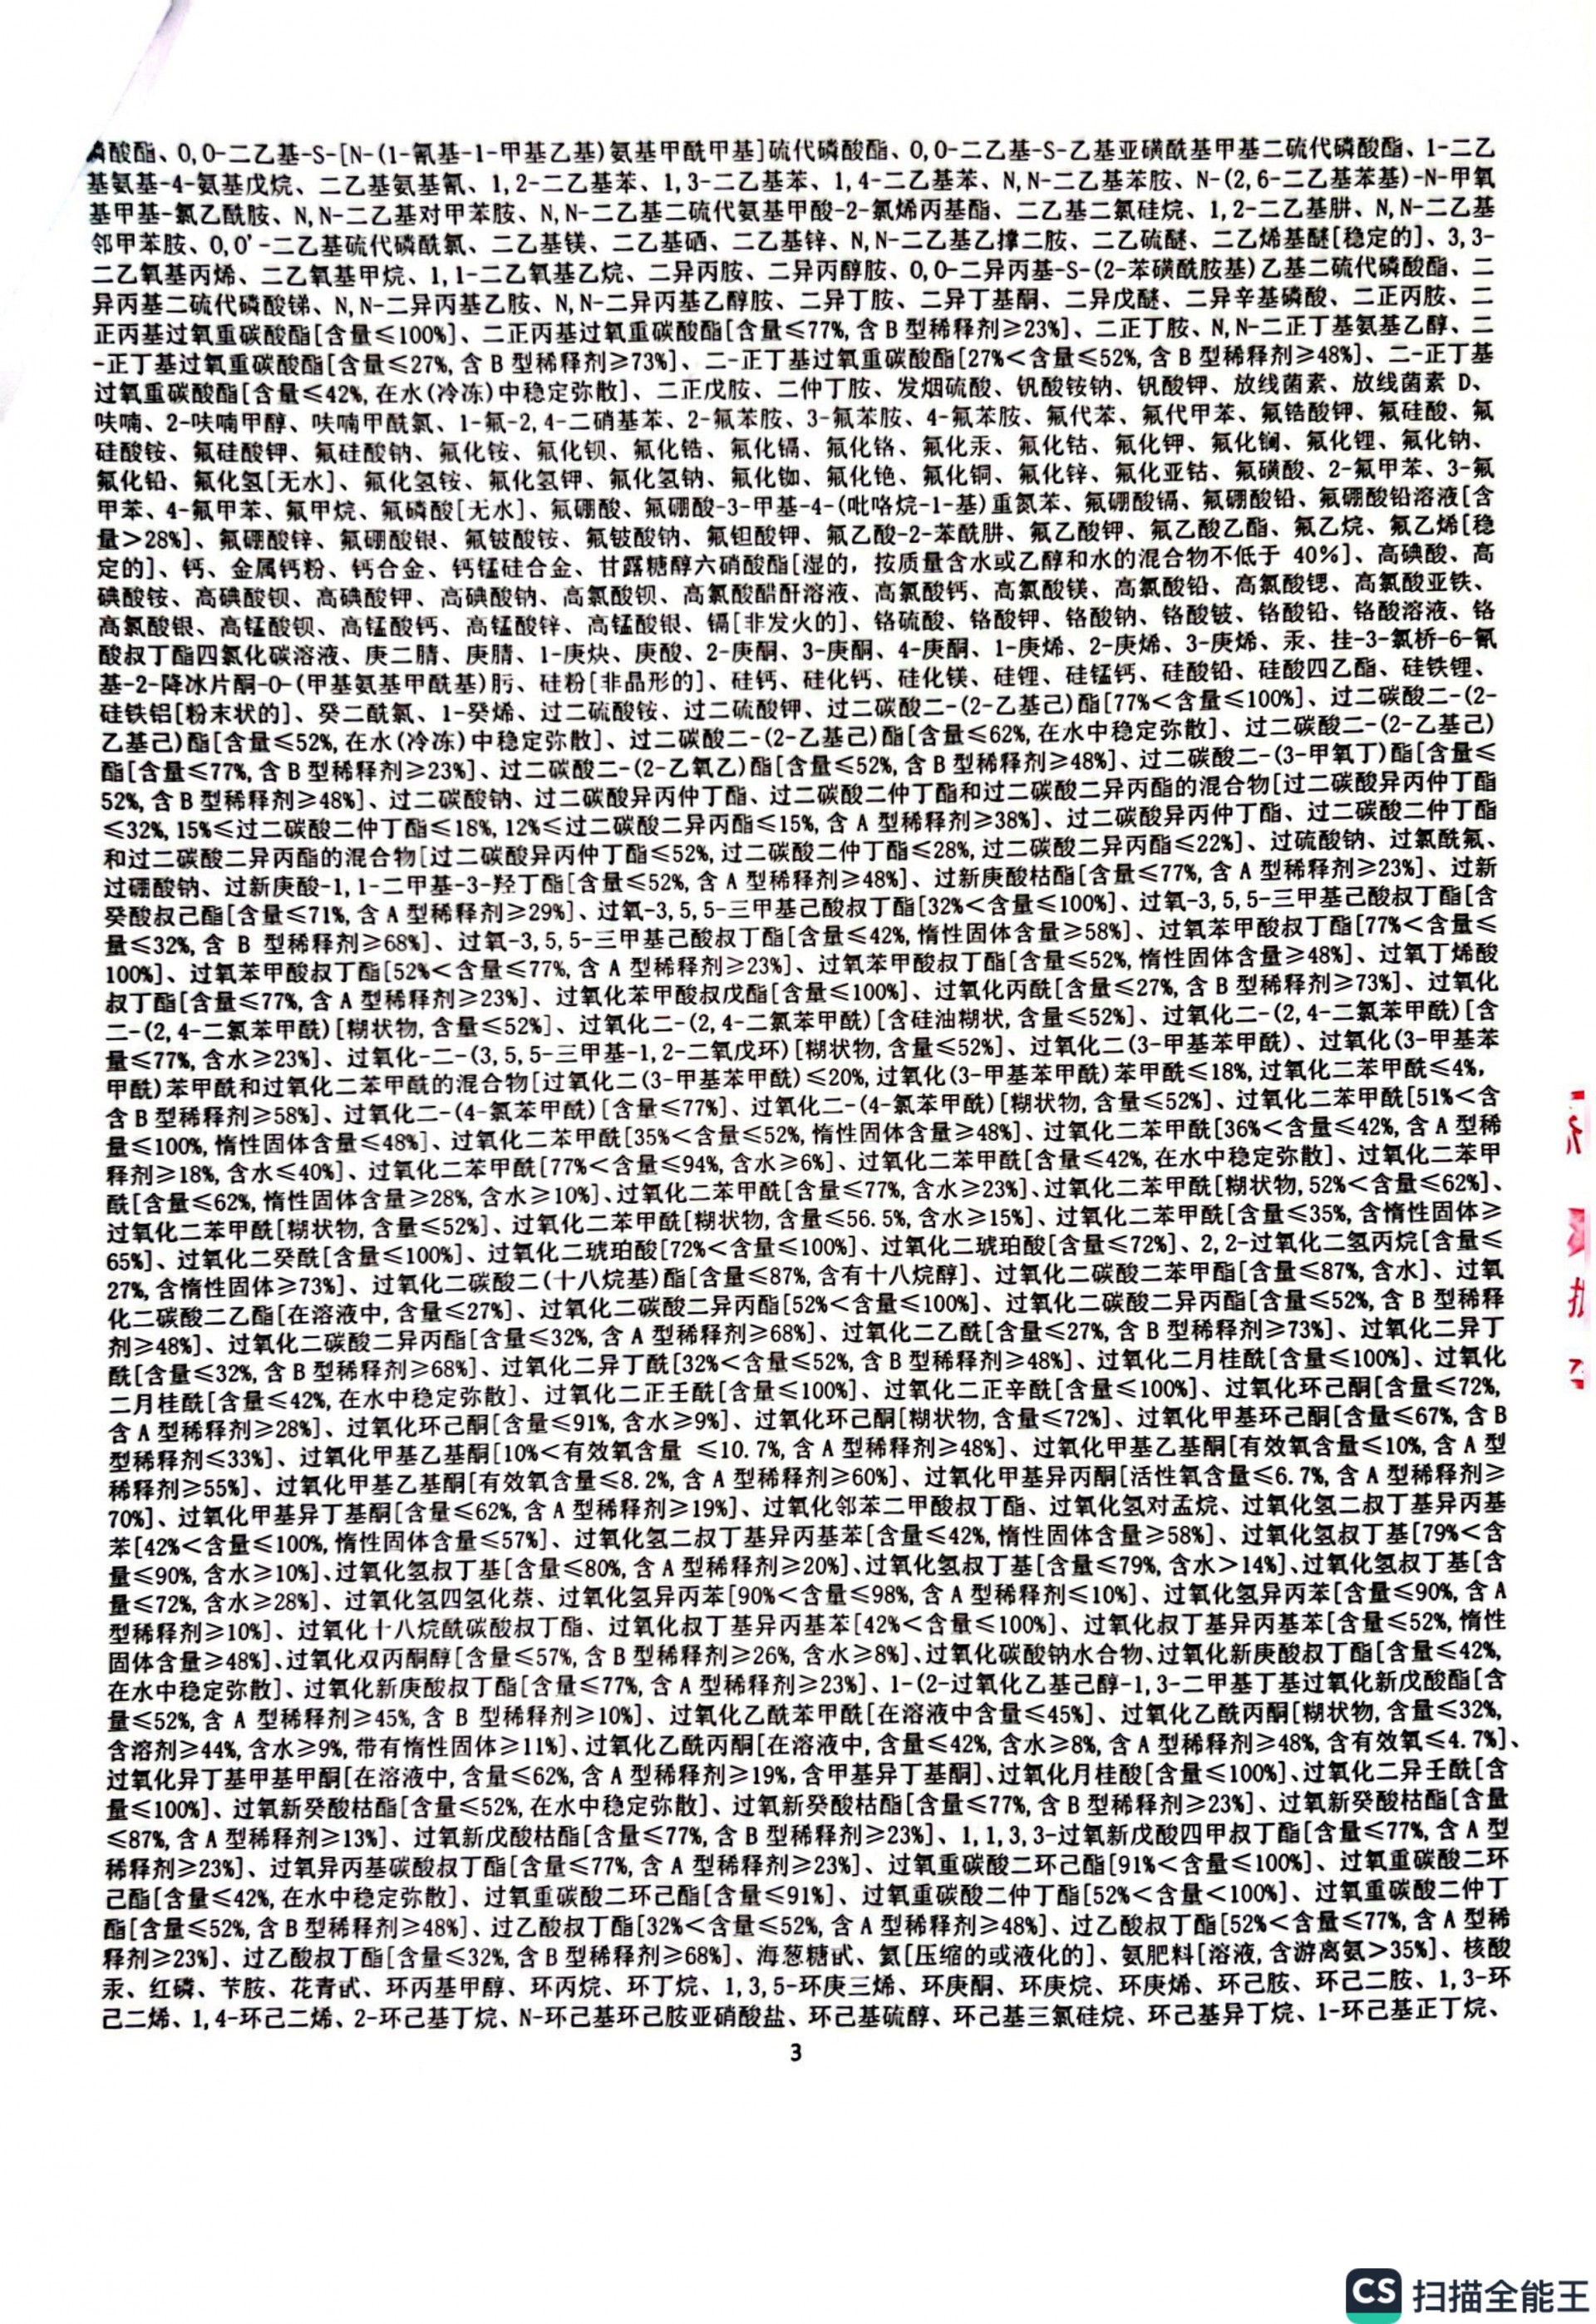 磷酸酯、O,O-二乙基-S-[N-(1-氰基-1-甲基乙基)氨基甲酰甲基]硫代磷酸酯、O,O-二乙基-S-乙基亚磺酰基甲基二硫代磷酸酯、1-二乙
基氨基-4-氨基戊烷、二乙基氨基氰、1,2-二乙基苯、1,3-二乙基苯、1,4-二乙基苯、N,N-二乙基苯胺、N-(2,6-二乙基苯基)-N-甲氧
基甲基-氯乙酰胺、N,N-二乙基对甲苯胺、N,N-二乙基二硫代氨基甲酸-2-氯烯丙基酯、二乙基二氯硅烷、1,2-二乙基肼、N,N-二乙基
邻甲苯胺、O,O'-二乙基硫代磷酰氯、二乙基镁、二乙基硒、二乙基锌、N,N-二乙基乙撑二胺、二乙硫醚、二乙烯基醚[稳定的]、3,3-
二乙氧基丙烯、二乙氧基甲烷、1,1-二乙氧基乙烷、二异丙胺、二异丙醇胺、O,O-二异丙基-S-(2-苯磺酰胺基)乙基二硫代磷酸酯、二
异丙基二硫代磷酸锑、N,N-二异丙基乙胺、N,N-二异丙基乙醇胺、二异丁胺、二异丁基酮、二异戊醚、二异辛基磷酸、二正丙胺、二
正丙基过氧重碳酸酯[含量≤100%]、二正丙基过氧重碳酸酯[含量≤77%,含 B 型稀释剂≥23%]、二正丁胺、N,N-二正丁基氨基乙醇、二
-正丁基过氧重碳酸酯[含量≤27%,含 B 型稀释剂≥73%]、二-正丁基过氧重碳酸酯[27%<含量≤52%,含 B 型稀释剂≥48%]、二-正丁基
过氧重碳酸酯[含量≤42%,在水(冷冻)中稳定弥散]、二正戊胺、二仲丁胺、发烟硫酸、钒酸铵钠、钒酸钾、放线菌素、放线菌素 D、
呋喃、2-呋喃甲醇、呋喃甲酰氯、1-氟-2,4-二硝基苯、2-氟苯胺、3-氟苯胺、4-氟苯胺、氟代苯、氟代甲苯、氟锆酸钾、氟硅酸、氟
硅酸铵、氟硅酸钾、氟硅酸钠、氟化铵、氟化钡、氟化锆、氟化镉、氟化铬、氟化汞、氟化钴、氟化钾、氟化镧、氟化锂、氟化钠、
氟化铅、氟化氢[无水]、氟化氢铵、氟化氢钾、氟化氢钠、氟化铷、氟化铯、氟化铜、氟化锌、氟化亚钴、氟磺酸、2-氟甲苯、3-氟
甲苯、4-氟甲苯、氟甲烷、氟磷酸[无水]、氟硼酸、氟硼酸-3-甲基-4-(吡咯烷-1-基)重氮苯、氟硼酸镉、氟硼酸铅、氟硼酸铅溶液[含
量>28%]、氟硼酸锌、氟硼酸银、氟铍酸铵、氟铍酸钠、氟钽酸钾、氟乙酸-2-苯酰肼、氟乙酸钾、氟乙酸乙酯、氟乙烷、氟乙烯[稳
定的]、钙、金属钙粉、钙合金、钙锰硅合金、甘露糖醇六硝酸酯[湿的，按质量含水或乙醇和水的混合物不低于 40%]、高碘酸、高
碘酸铵、高碘酸钡、高碘酸钾、高碘酸钠、高氯酸钡、高氯酸醋酐溶液、高氯酸钙、高氯酸镁、高氯酸铅、高氯酸锶、高氯酸亚铁、
高氯酸银、高锰酸钡、高锰酸钙、高锰酸锌、高锰酸银、镉[非发火的]、铬硫酸、铬酸钾、铬酸钠、铬酸铍、铬酸铅、铬酸溶液、铬
酸叔丁酯四氯化碳溶液、庚二腈、庚腈、1-庚炔、庚酸、2-庚酮、3-庚酮、4-庚酮、1-庚烯、2-庚烯、3-庚烯、汞、挂-3-氯桥-6-氰
基-2-降冰片酮-O-(甲基氨基甲酰基)肟、硅粉[非晶形的]、硅钙、硅化钙、硅化镁、硅锂、硅锰钙、硅酸铅、硅酸四乙酯、硅铁锂、
硅铁铝[粉末状的]、癸二酰氯、1-癸烯、过二硫酸铵、过二硫酸钾、过二碳酸二-(2-乙基己)酯[77%<含量≤100%]、过二碳酸二-(2-
乙基己)酯[含量≤52%,在水(冷冻)中稳定弥散]、过二碳酸二-(2-乙基己)酯[含量≤62%,在水中稳定弥散]、过二碳酸二-(2-乙基己)
酯[含量≤77%,含 B 型稀释剂≥23%]、过二碳酸二-(2-乙氧乙)酯[含量≤52%,含 B 型稀释剂≥48%]、过二碳酸二-(3-甲氧丁)酯[含量≤
52%,含 B 型稀释剂≥48%]、过二碳酸钠、过二碳酸异丙仲丁酯、过二碳酸二仲丁酯和过二碳酸二异丙酯的混合物[过二碳酸异丙仲丁酯
≤32%,15%≤过二碳酸二仲丁酯≤18%,12%≤过二碳酸二异丙酯≤15%,含 A 型稀释剂≥38%]、过二碳酸异丙仲丁酯、过二碳酸二仲丁酯
和过二碳酸二异丙酯的混合物[过二碳酸异丙仲丁酯≤52%,过二碳酸二仲丁酯≤28%,过二碳酸二异丙酯≤22%]、过硫酸钠、过氯酰氟、
过硼酸钠、过新庚酸-1,1-二甲基-3-羟丁酯[含量≤52%,含 A 型稀释剂≥48%]、过新庚酸枯酯[含量≤77%,含 A 型稀释剂≥23%]、过新
癸酸叔己酯[含量≤71%,含 A 型稀释剂≥29%]、过氧-3,5,5-三甲基己酸叔丁酯[32%<含量≤100%]、过氧-3,5,5-三甲基己酸叔丁酯[含
量≤32%,含 B 型稀释剂≥68%]、过氧-3,5,5-三甲基己酸叔丁酯[含量≤42%,惰性固体含量≥58%]、过氧苯甲酸叔丁酯[77%<含量≤
100%]、过氧苯甲酸叔丁酯[52%<含量≤77%,含 A 型稀释剂≥23%]、过氧苯甲酸叔丁酯[含量≤52%,惰性固体含量≥48%]、过氧丁烯酸
叔丁酯[含量≤77%,含 A 型稀释剂≥23%]、过氧化苯甲酸叔戊酯[含量≤100%]、过氧化丙酰[含量≤27%,含 B 型稀释剂≥73%]、过氧化
二-(2,4-二氯苯甲酰)[糊状物,含量≤52%]、过氧化二-(2,4-二氯苯甲酰)[含硅油糊状,含量≤52%]、过氧化二-(2,4-二氯苯甲酰)[含
量≤77%,含水≥23%]、过氧化-二-(3,5,5-三甲基-1,2-二氧戊环)[糊状物,含量≤52%]、过氧化二(3-甲基苯甲酰)、过氧化(3-甲基苯
甲酰)苯甲酰和过氧化二苯甲酰的混合物[过氧化二(3-甲基苯甲酰)≤20%,过氧化(3-甲基苯甲酰)苯甲酰≤18%,过氧化二苯甲酰≤4%,
含 B 型稀释剂≥58%]、过氧化二-(4-氯苯甲酰)[含量≤77%]、过氧化二-(4-氯苯甲酰)[糊状物,含量≤52%]、过氧化二苯甲酰[51%<含
量≤100%,惰性固体含量≤48%]、过氧化二苯甲酰[35%<含量≤52%,惰性固体含量≥48%]、过氧化二苯甲酰[36%<含量≤42%,含 A 型稀
释剂≥18%,含水≤40%]、过氧化二苯甲酰[77%<含量≤94%,含水≥6%]、过氧化二苯甲酰[含量≤42%,在水中稳定弥散]、过氧化二苯甲
酰[含量≤62%,惰性固体含量≥28%,含水≥10%]、过氧化二苯甲酰[含量≤77%,含水≥23%]、过氧化二苯甲酰[糊状物,52%<含量≤62%]、
过氧化二苯甲酰[糊状物,含量≤52%]、过氧化二苯甲酰[糊状物,含量≤56.5%,含水≥15%]、过氧化二苯甲酰[含量≤35%,含惰性固体≥
65%]、过氧化二癸酰[含量≤100%]、过氧化二琥珀酸[72%<含量≤100%]、过氧化二琥珀酸[含量≤72%]、2,2-过氧化二氢丙烷[含量≤
27%,含惰性固体≥73%]、过氧化二碳酸二(十八烷基)酯[含量≤87%,含有十八烷醇]、过氧化二碳酸二苯甲酯[含量≤87%,含水]、过氧
化二碳酸二乙酯[在溶液中,含量≤27%]、过氧化二碳酸二异丙酯[52%<含量≤100%]、过氧化二碳酸二异丙酯[含量≤52%,含 B 型稀释
剂≥48%]、过氧化二碳酸二异丙酯[含量≤32%,含 A 型稀释剂≥68%]、过氧化二乙酰[含量≤27%,含 B 型稀释剂≥73%]、过氧化二异丁
酰[含量≤32%,含 B 型稀释剂≥68%]、过氧化二异丁酰[32%<含量≤52%,含 B 型稀释剂≥48%]、过氧化二月桂酰[含量≤100%]、过氧化
二月桂酰[含量≤42%,在水中稳定弥散]、过氧化二正壬酰[含量≤100%]、过氧化二正辛酰[含量≤100%]、过氧化环己酮[含量≤72%,
含 A 型稀释剂≥28%]、过氧化环己酮[含量≤91%,含水≥9%]、过氧化环己酮[糊状物,含量≤72%]、过氧化甲基环己酮[含量≤67%,含 B
型稀释剂≤33%]、过氧化甲基乙基酮[10%<有效氧含量 ≤10.7%,含 A 型稀释剂≥48%]、过氧化甲基乙基酮[有效氧含量≤10%,含 A 型
稀释剂≥55%]、过氧化甲基乙基酮[有效氧含量≤8.2%,含 A 型稀释剂≥60%]、过氧化甲基异丙酮[活性氧含量≤6.7%,含 A 型稀释剂≥
70%]、过氧化甲基异丁基酮[含量≤62%,含 A 型稀释剂≥19%]、过氧化邻苯二甲酸叔丁酯、过氧化氢对孟烷、过氧化氢二叔丁基异丙基
苯[42%<含量≤100%,惰性固体含量≤57%]、过氧化氢二叔丁基异丙基苯[含量≤42%,惰性固体含量≥58%]、过氧化氢叔丁基[79%<含
量≤90%,含水≥10%]、过氧化氢叔丁基[含量≤80%,含 A 型稀释剂≥20%]、过氧化氢叔丁基[含量≤79%,含水>14%]、过氧化氢叔丁基[含
量≤72%,含水≥28%]、过氧化氢四氢化萘、过氧化氢异丙苯[90%<含量≤98%,含 A 型稀释剂≤10%]、过氧化氢异丙苯[含量≤90%,含 A
型稀释剂≥10%]、过氧化十八烷酰碳酸叔丁酯、过氧化叔丁基异丙基苯[42%<含量≤100%]、过氧化叔丁基异丙基苯[含量≤52%,惰性
固体含量≥48%]、过氧化双丙酮醇[含量≤57%,含 B 型稀释剂≥26%,含水≥8%]、过氧化碳酸钠水合物、过氧化新庚酸叔丁酯[含量≤42%,
在水中稳定弥散]、过氧化新庚酸叔丁酯[含量≤77%,含 A 型稀释剂≥23%]、1-(2-过氧化乙基己醇-1,3-二甲基丁基过氧化新戊酸酯[含
量≤52%,含 A 型稀释剂≥45%,含 B 型稀释剂≥10%]、过氧化乙酰苯甲酰[在溶液中含量≤45%]、过氧化乙酰丙酮[糊状物,含量≤32%,
含溶剂≥44%,含水≥9%,带有惰性固体≥11%]、过氧化乙酰丙酮[在溶液中,含量≤42%,含水≥8%,含 A 型稀释剂≥48%,含有效氧≤4.7%]、
过氧化异丁基甲基甲酮[在溶液中,含量≤62%,含 A 型稀释剂≥19%,含甲基异丁基酮]、过氧化月桂酸[含量≤100%]、过氧化二异壬酰[含
量≤100%]、过氧新癸酸枯酯[含量≤52%,在水中稳定弥散]、过氧新癸酸枯酯[含量≤77%,含 B 型稀释剂≥23%]、过氧新癸酸枯酯[含量
≤87%,含 A 型稀释剂≥13%]、过氧新戊酸枯酯[含量≤77%,含 B 型稀释剂≥23%]、1,1,3,3-过氧新戊酸四甲叔丁酯[含量≤77%,含 A 型
稀释剂≥23%]、过氧异丙基碳酸叔丁酯[含量≤77%,含 A 型稀释剂≥23%]、过氧重碳酸二环己酯[91%<含量≤100%]、过氧重碳酸二环
己酯[含量≤42%,在水中稳定弥散]、过氧重碳酸二环己酯[含量≤91%]、过氧重碳酸二仲丁酯[52%<含量<100%]、过氧重碳酸二仲丁
酯[含量≤52%,含 B 型稀释剂≥48%]、过乙酸叔丁酯[32%<含量≤52%,含 A 型稀释剂≥48%]、过乙酸叔丁酯[52%<含量≤77%,含 A 型稀
释剂≥23%]、过乙酸叔丁酯[含量≤32%,含 B 型稀释剂≥68%]、海葱糖甙、氦[压缩的或液化的]、氨肥料[溶液,含游离氨>35%]、核酸
汞、红磷、苄胺、花青甙、环丙基甲醇、环丙烷、环丁烷、1,3,5-环庚三烯、环庚酮、环庚烷、环庚烯、环己胺、环己二胺、1,3-环
己二烯、1,4-环己二烯、2-环己基丁烷、N-环己基环己胺亚硝酸盐、环己基硫醇、环己基三氯硅烷、环己基异丁烷、1-环己基正丁烷、
3
CS 扫描全能王